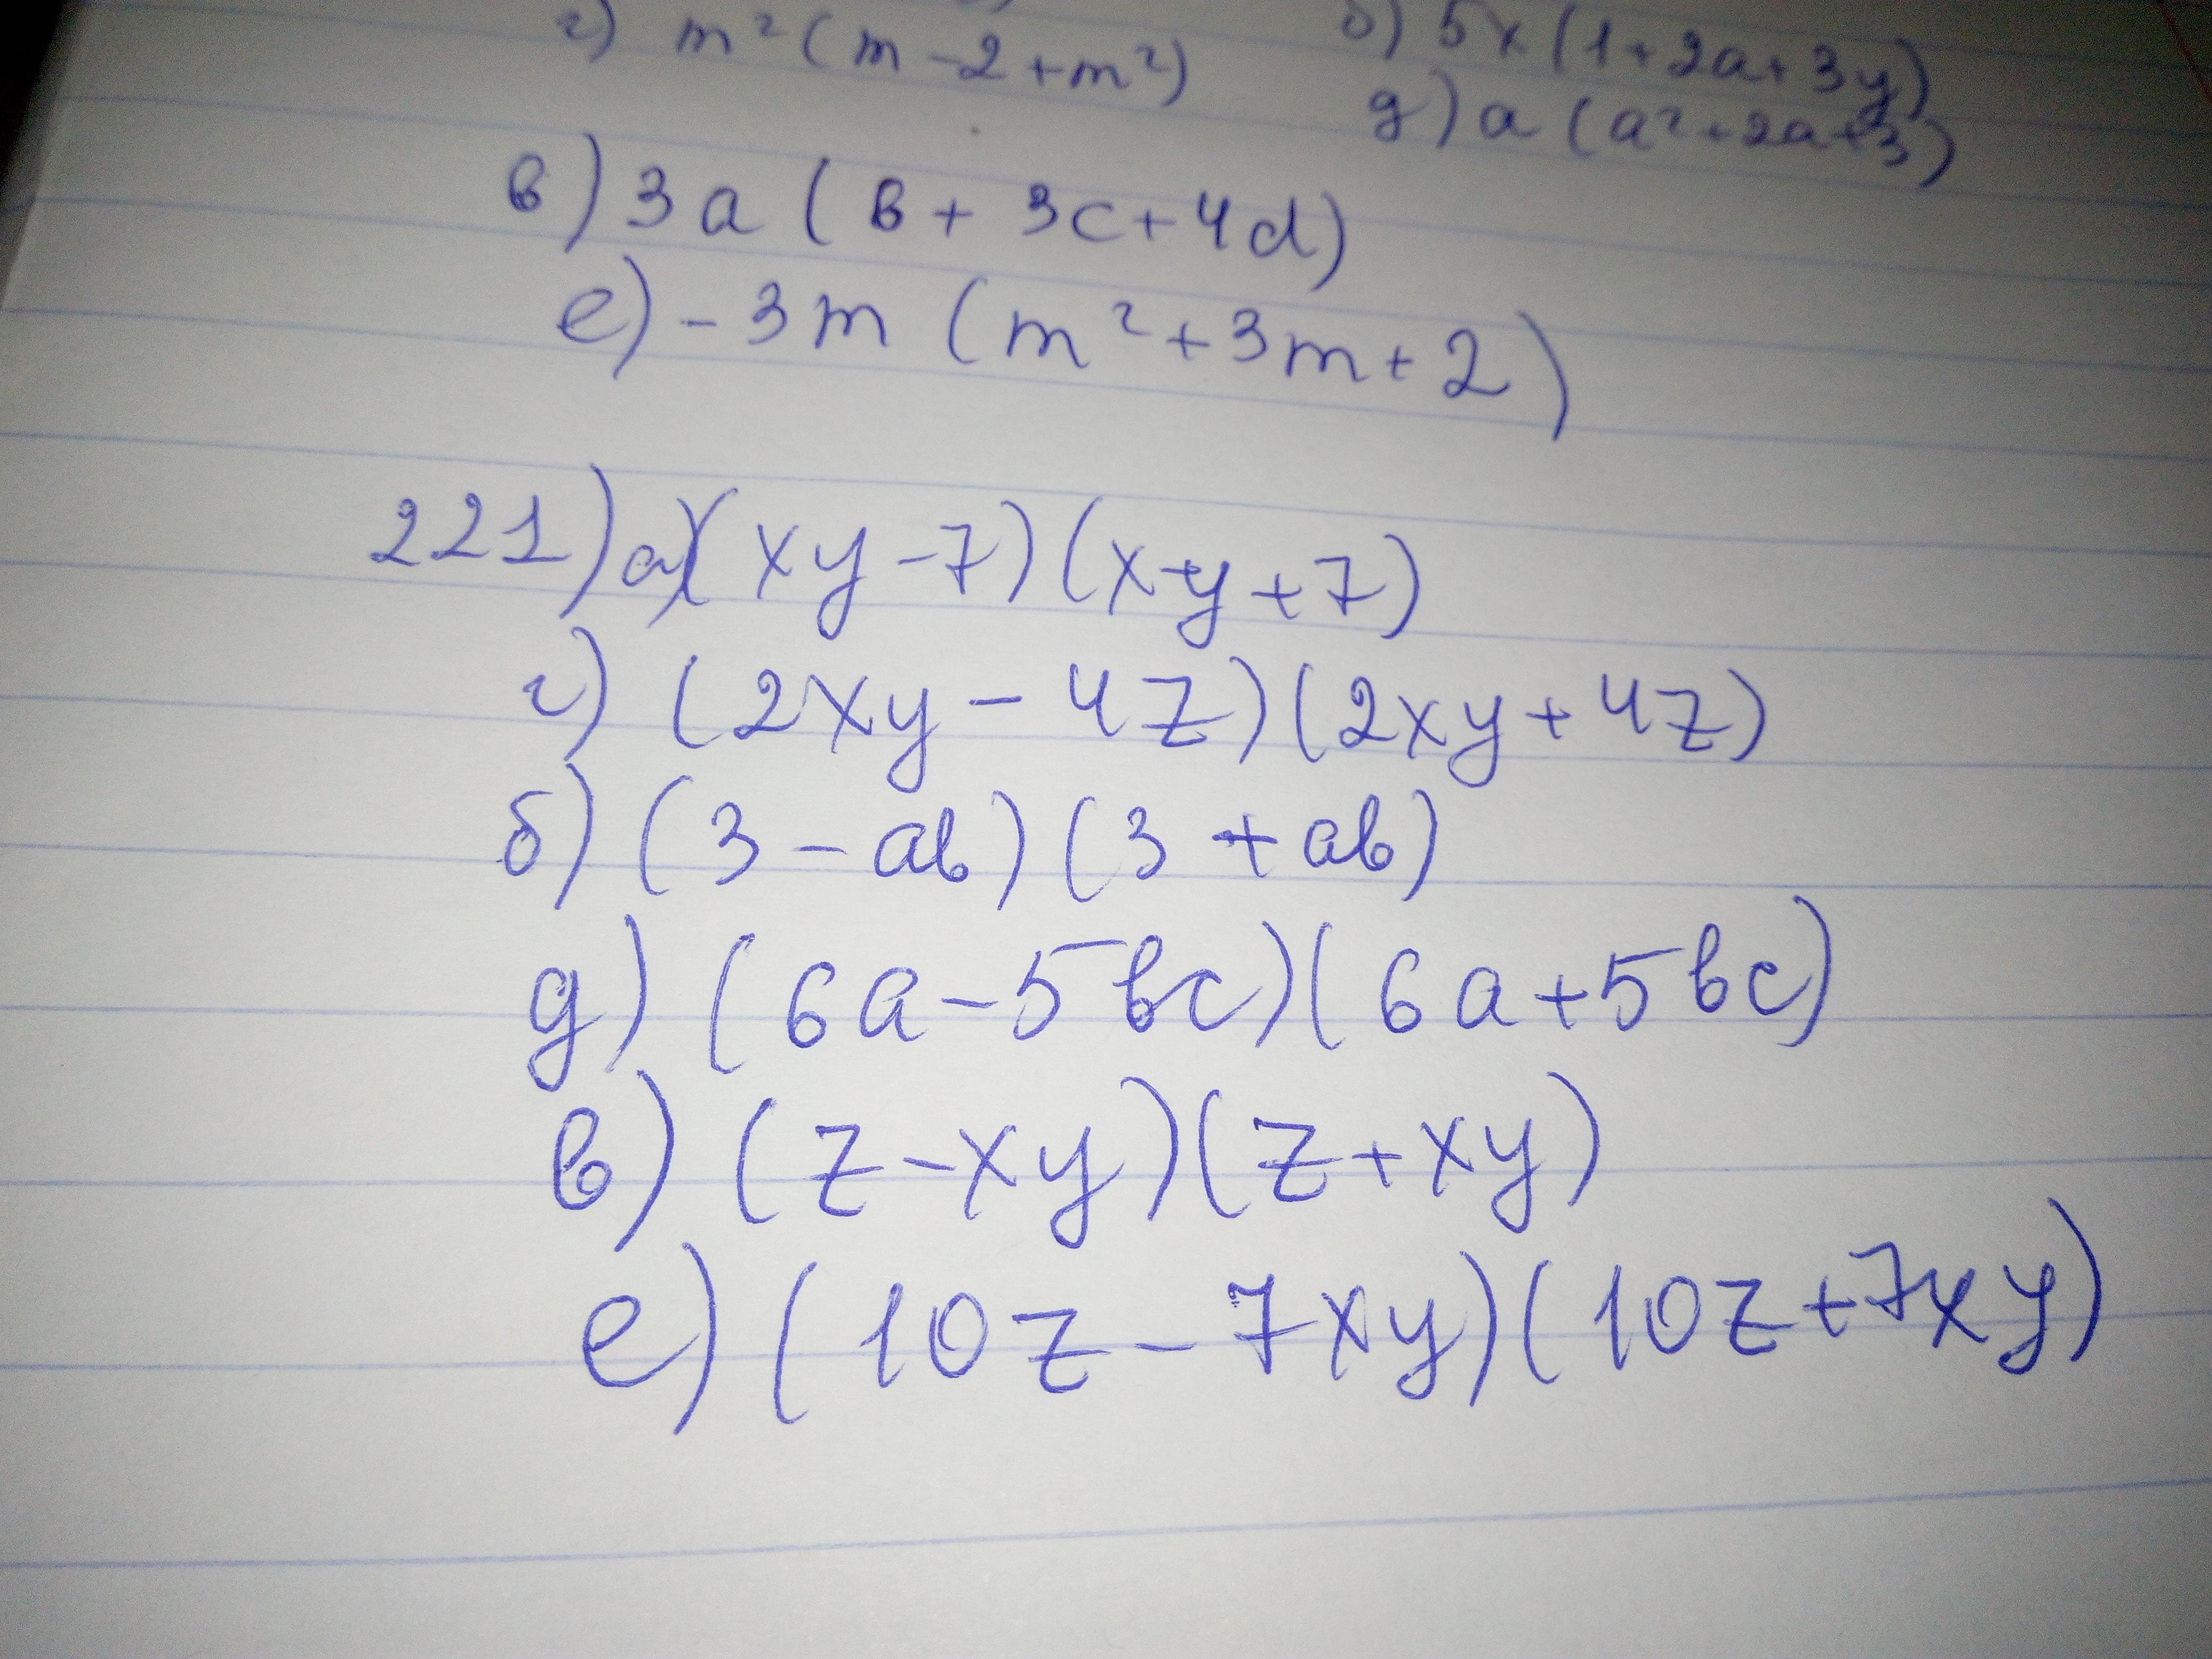 г) m²(m-2+m²)
б) 5x(1+2a+3y)
g) a(a²+2a+3)
в) 3a(в+3c+4d)
e) -3m(m²+3m+2)
221) a)(xy-7)(xy+7)
г) (2xy-4z)(2xy+4z)
б) (3-ab)(3+ab)
g) (6a-5bc)(6a+5bc)
в) (z-xy)(z+xy)
e) (10z-7xy)(10z+7xy)